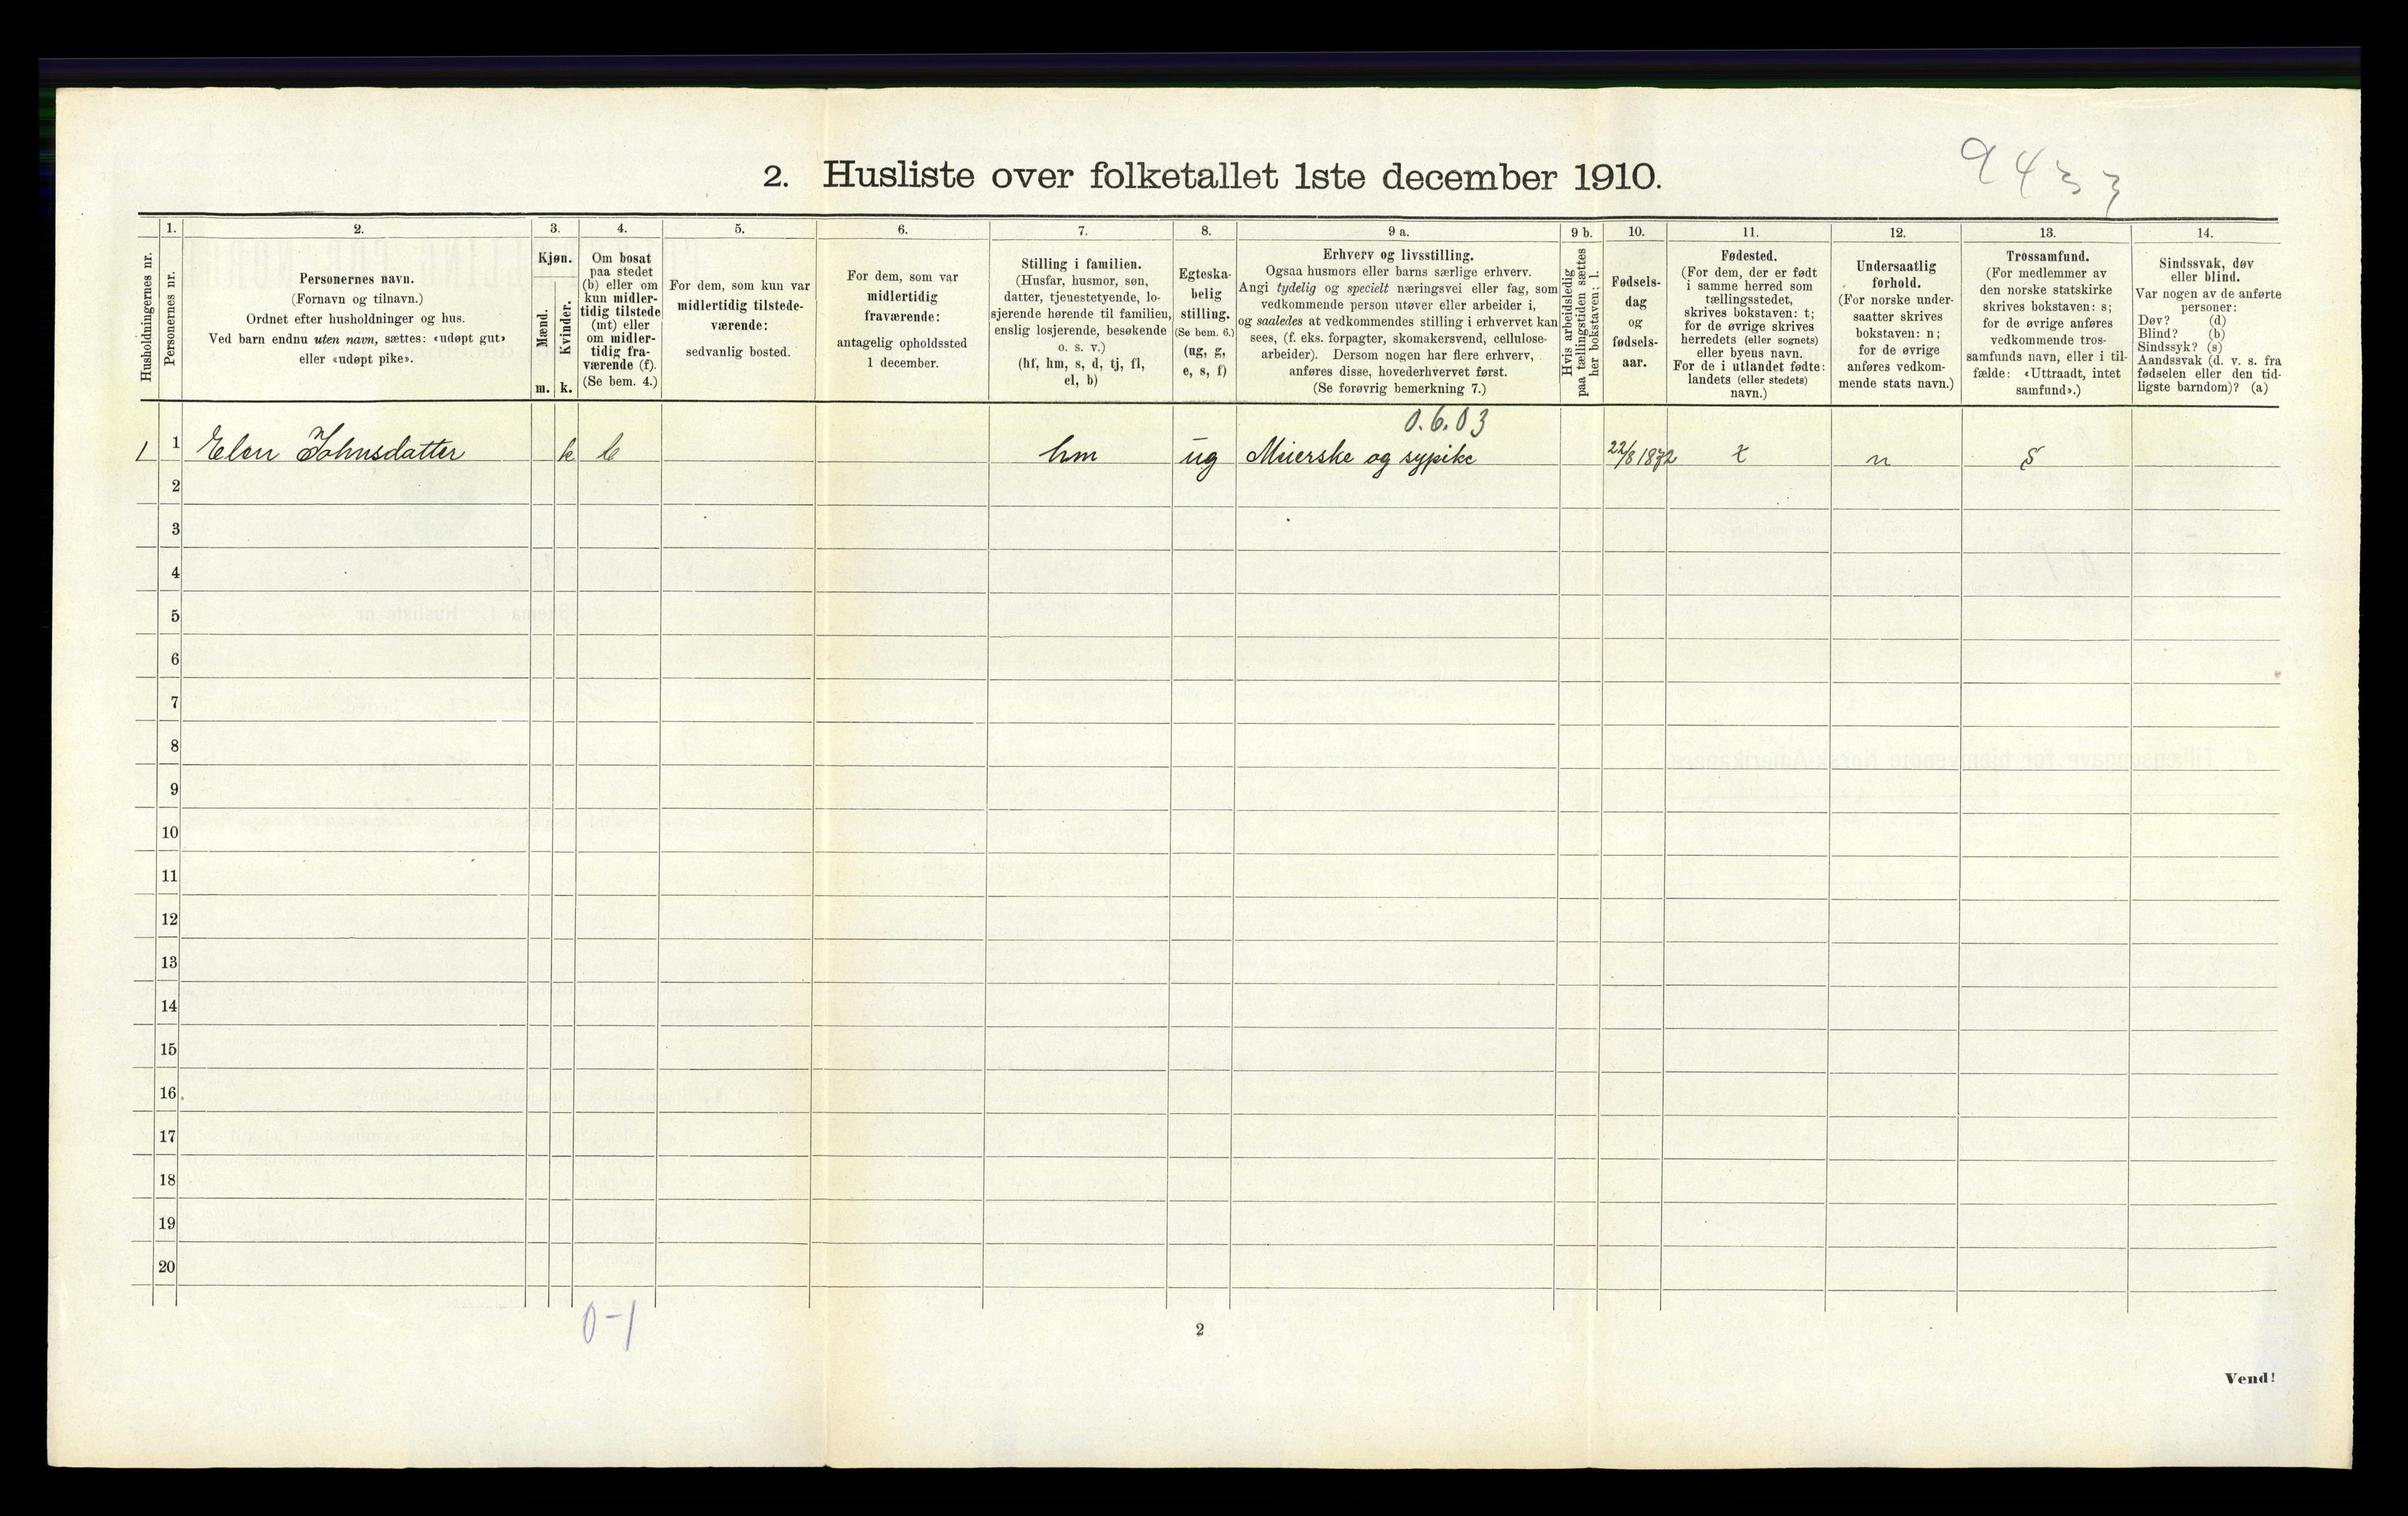 9433
2. Husliste over folketallet 1ste december 1910.
Husholdningernes nr.
1.
Personernes nr.
2.
Personernes navn.
(Fornavn og tilnavn.)
Ordnet efter husholdninger og hus.
Ved barn endnu uten navn, sættes: «udøpt gut»
eller «udøpt pike».
3.
Kjøn.
Mænd.
Kvinder.
m. k.
4.
Om bosat
paa stedet
(b) eller om
kun midler-
tidig tilstede
(mt) eller
om midler-
tidig fra-
værende (f).
(Se bem. 4.)
5.
For dem, som kun var
midlertidig tilstede-
værende:
sedvanlig bosted.
6.
For dem, som var
midlertidig
fraværende:
antagelig opholdssted
1 december.
7.
Stilling i familien.
(Husfar, husmor, søn,
datter, tjenestetyende, lo-
sjerende hørende til familien,
enslig losjerende, besøkende
o. s. v.)
(hf, hm, s, d, tj, fl,
el, b)
8.
Egteska-
belig
stilling.
(Se bem. 6.)
(ug, g,
e, s, f)
9 a.
Erhverv og livsstilling.
Ogsaa husmors eller barns særlige erhverv.
Angi tydelig og specielt næringsvei eller fag, som
vedkommende person utøver eller arbeider i,
og saaledes at vedkommendes stilling i erhvervet kan
sees, (f. eks. forpagter, skomakersvend, cellulose-
arbeider). Dersom nogen har flere erhverv,
anføres disse, hovederhvervet først.
(Se forøvrig bemerkning 7.)
9 b.
Hvis arbeidsledig
paa tællingstiden sættes
her bokstaven: l.
10.
Fødsels-
dag
og
fødsels-
aar.
11.
Fødested.
(For dem, der er født
i samme herred som
tællingsstedet,
skrives bokstaven: t;
for de øvrige skrives
herredets (eller sognets)
eller byens navn.
For de i utlandet fødte:
landets (eller stedets)
navn.)
12.
Undersaatlig
forhold.
(For norske under-
saatter skrives
bokstaven: n;
for de øvrige
anføres vedkom-
mende stats navn.)
13.
Trossamfund.
(For medlemmer av
den norske statskirke
skrives bokstaven: s;
for de øvrige anføres
vedkommende tros-
samfunds navn, eller i til-
fælde: «Uttraadt, intet
samfund».)
14.
Sindssvak, døv
eller blind.
Var nogen av de anførte
personer:
Døv? (d)
Blind? (b)
Sindssyk? (s)
Aandssvak (d. v. s. fra
fødselen eller den tid-
ligste barndom)? (a)
0.6.03
1 1 Elen Johnsdatter k b hm ug Meierske og sypike 22/8 1872 t n s
2
3
4
5
6
7
8
9
10
11
12
13
14
15
16
17
18
19
20
0-1
2
Vend!